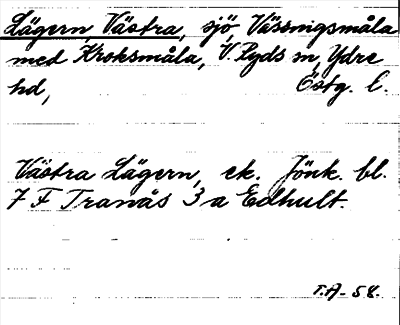 Lägern, Västra, sjö, Vässnigsmåla
med Kroksmåla, V. Ryds sn, Ydre
hd, Östg. l.
Västra Lägern, ek. Jönk. bl.
7 F Tranås 3 a Edhult.
T.A-58.